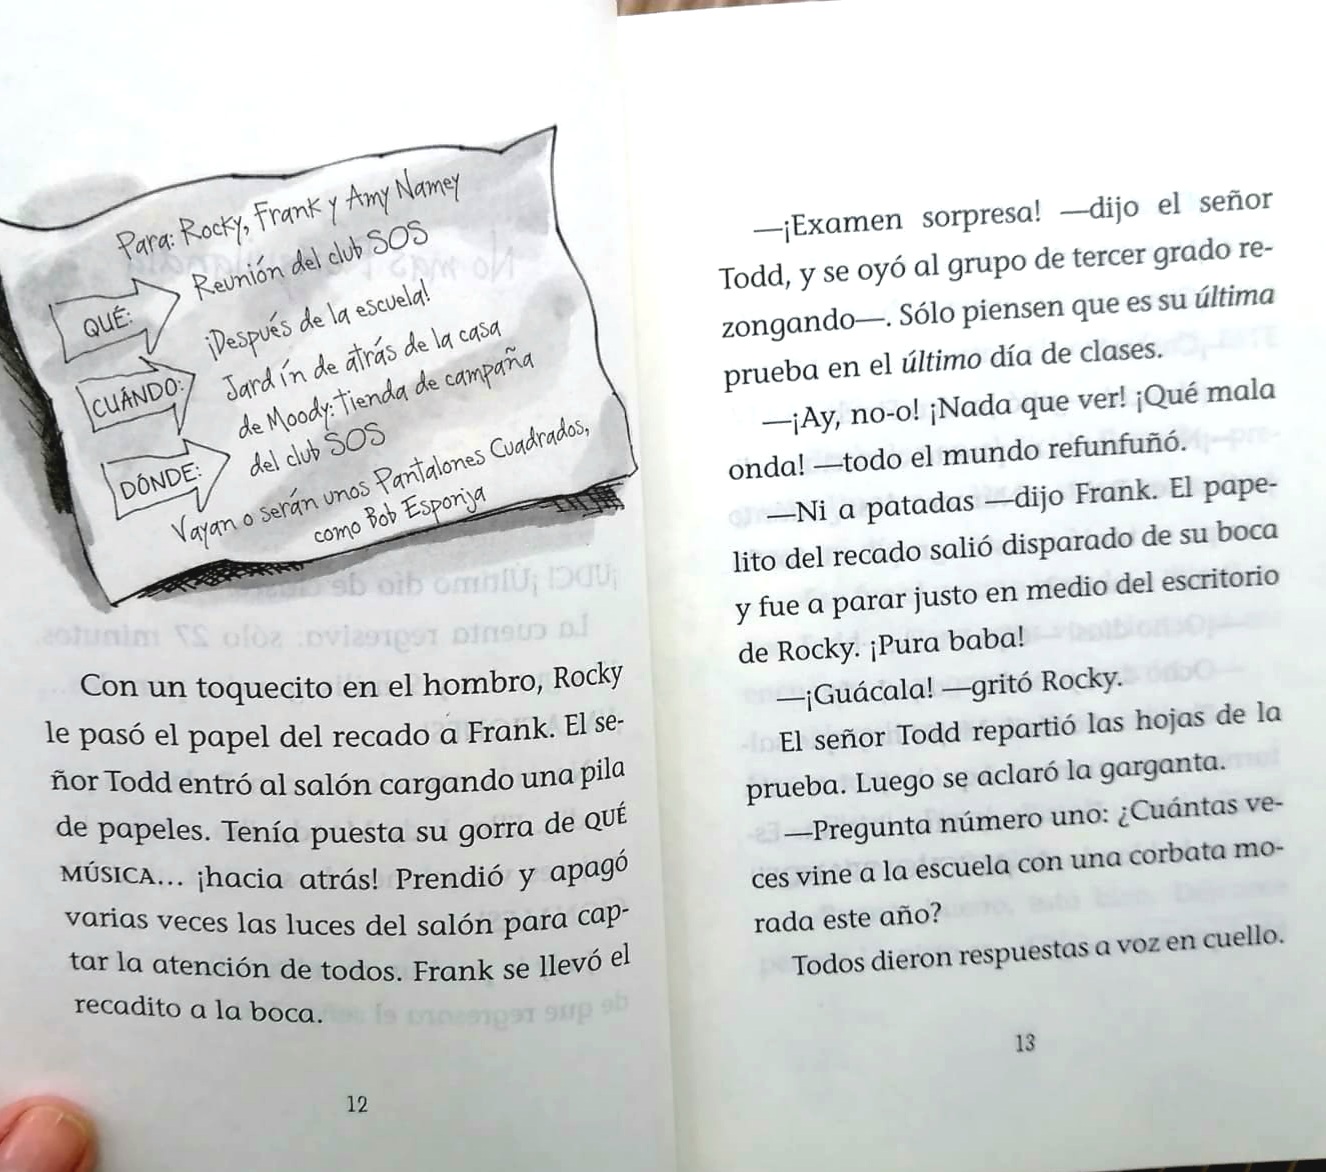 Para: Rocky, Frank y Amy Namey
QUÉ:
Reunión del club SOS
CUÁNDO:
¡Después de la escuela!
DÓNDE:
Jardín de atrás de la casa
de Moody: Tienda de campaña
del club SOS
Vayan o serán unos Pantalones Cuadrados,
como Bob Esponja
Con un toquecito en el hombro, Rocky
le pasó el papel del recado a Frank. El se-
ñor Todd entró al salón cargando una pila
de papeles. Tenía puesta su gorra de QUÉ
MÚSICA... ¡hacia atrás! Prendió y apagó
varias veces las luces del salón para cap-
tar la atención de todos. Frank se llevó el
recadito a la boca.
12
—¡Examen sorpresa! —dijo el señor
Todd, y se oyó al grupo de tercer grado re-
zongando—. Sólo piensen que es su última
prueba en el último día de clases.
—¡Ay, no-o! ¡Nada que ver! ¡Qué mala
onda! —todo el mundo refunfuñó.
—Ni a patadas —dijo Frank. El pape-
lito del recado salió disparado de su boca
y fue a parar justo en medio del escritorio
de Rocky. ¡Pura baba!
—¡Guácala! —gritó Rocky.
El señor Todd repartió las hojas de la
prueba. Luego se aclaró la garganta.
—Pregunta número uno: ¿Cuántas ve-
ces vine a la escuela con una corbata mo-
rada este año?
Todos dieron respuestas a voz en cuello.
13